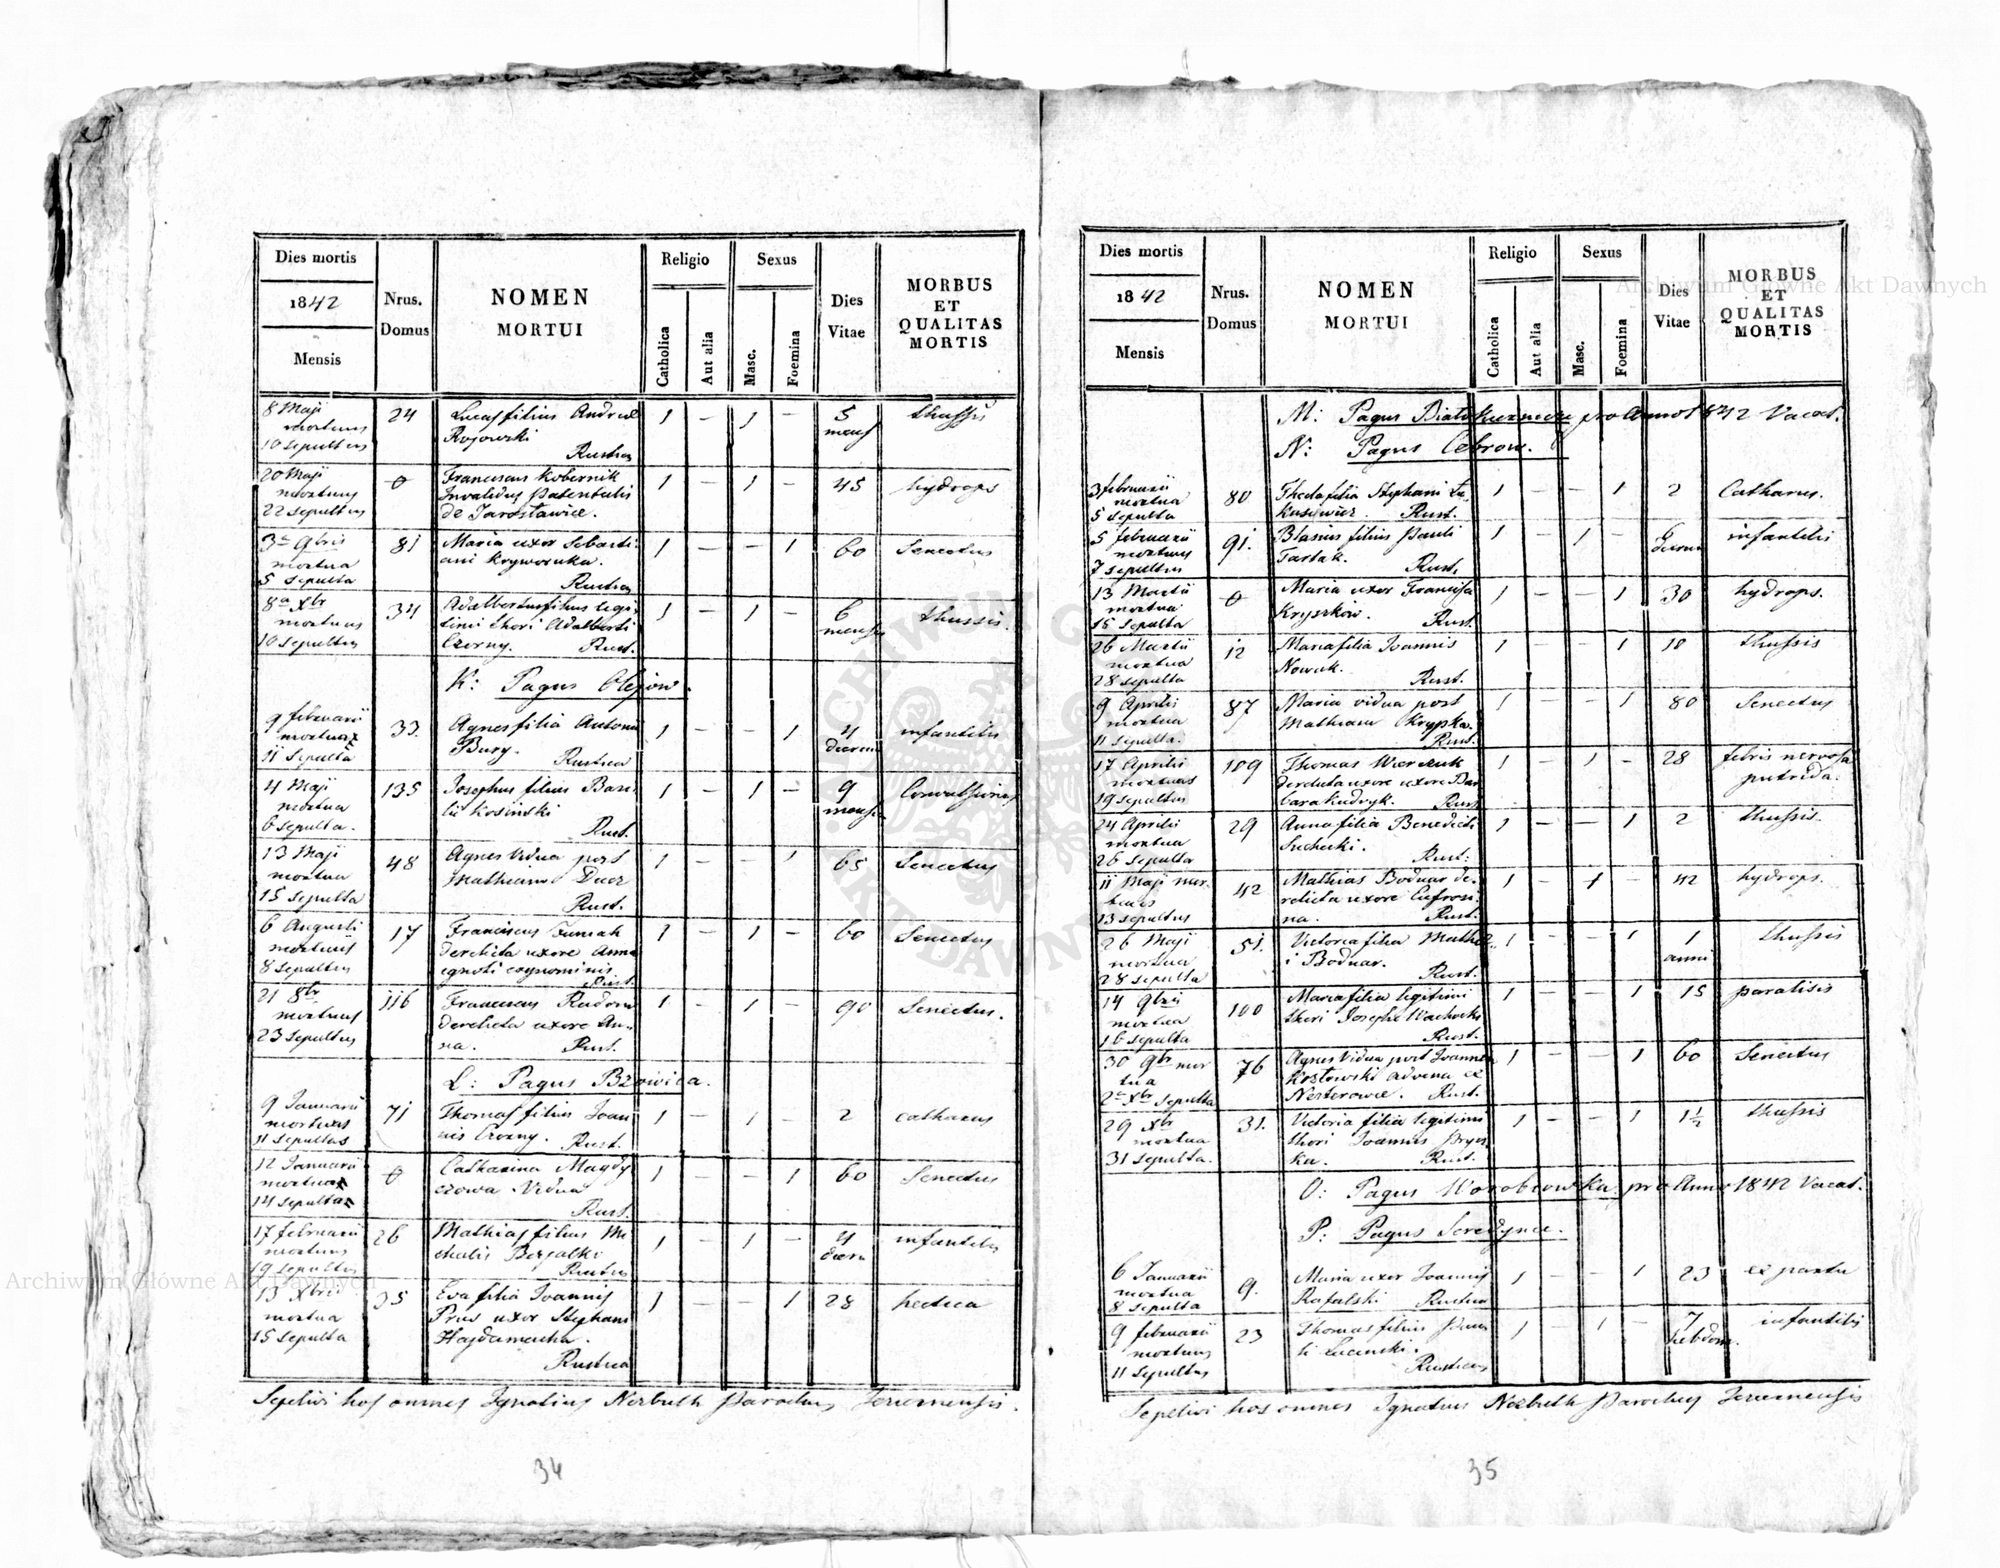 Dies mortis
1842
Mensis
Nrus.
Domus
NOMEN
MORTUI
Religio
Catholica
Aut alia
Sexus
Masc.
Foemina
Dies
Vitae
MORBUS
ET
QUALITAS
MORTIS
8 Maji 24 Lucas filius Andreae 1 – 1 – 5 thussis
mortuus Rojowski mens
10 sepultus Rustica
20 Maji 0 Franciscus Kobernik 1 – 1 – 45 hydrops
mortuus Invalidus patentalis
22 sepultus de Jarosławice.
3a 9bris 81 Maria uxor Sebasti- 1 – – 1 60 Senectus
mortua ani Kryworuka.
5 sepulta Rustica
8a Xbr 34 Adalbertus filius legi- 1 – 1 – 6 thussis.
mortuus timi thori Adalberti mensis
10 sepultus Czorny. Rust.
K: Pagus Olejow.
9 februarii 33. Agnes filia Antonii 1 – – 1 4 infantilis
mortua Bury. Rustica dierum
11 sepulta
4 Maji 135 Josephus filius Basi- 1 – 1 – 9 Convulsiones
mortua lii Kosinski mensis
6 sepulta. Rust.
13 Maji 48 Agnes Vidua post 1 – – 1 65 Senectus
mortua Mathiam Ducz
15 sepulta Rust.
6 Augusti 17 Franciscus 1 – 1 – 60 Senectus
mortuus derelicta uxore Anna
8 sepultus ignoti cognominis
Rust.
21 8br 116 Franciscus 1 – 1 – 90 Senectus.
mortuus derelicta uxore An-
23 sepultus na. Rust.
L: Pagus Bzowica.
9 Januarii 71 Thomas filius Joan- 1 – 1 – 2 catharus
mortuus nis Czorny. Rust.
11 sepultus
12 Januarii 0 Catharina Magdy- 1 – – 1 60 Senectus
mortua czowa Vidua
14 sepulta Rust.
17 februarii 26 Mathias filius Mi- 1 – 1 – 4 infantilis
mortuus chalis dieru
19 sepultus Rustica
13 Xbris 35 Eva filia Joannis 1 – 1 28 hectica
mortua Prus uxor Stephani
15 sepulta Hajdamacha.
Rustica
Sepelivi hos omnes Ignatius Nerbuth Parochus Jeziernensis.
34
Dies mortis
1842
Mensis
Nrus.
Domus
NOMEN
MORTUI
Religio
Catholica
Aut alia
Sexus
Masc.
Foemina
Dies
Vitae
MORBUS
ET
QUALITAS
MORTIS
M: Pagus pro Anno 1842 Vacat.
N: Pagus Cebrow.
3 februarii 80 Thecla filia Stephani Lu- 1 – – 1 2 Catharus.
mortua kasiewicz. Rust.
5 sepulta
5 februarii 91. Blasius filius Pauli 1 – 1 – 6 infantilis
mortuus Tartak. Rust. dierum
7 sepultus
13 Martii 0 Maria uxor Francisci 1 – – 1 30 hydrops.
mortua Kryszkow. Rust.
15 sepulta
26 Martii 12 Maria filia Joannis 1 – – 1 10 thussis
mortua Nowak. Rust.
28 sepulta
9 Aprilis 87 Maria vidua post 1 – – 1 80 Senectus
mortua Mathiam Krypka.
11 sepulta. Rust.
17 Aprilis 109 Thomas 1 – 1 – 28 febris nervosa
mortuus derelicta uxore uxore Bar- putrida.
19 sepultus bara Kudryk. Rust.
24 Aprilis 29 Anna filia Benedicti 1 – – 1 2 thussis.
mortua Suchecki. Rust:
26 sepulta
11 Maji mor- 42 Mathias Bodnar de- 1 – 1 – 42 hydrops.
tuus relicta uxore Eufrosi-
13 sepultus na. Rust.
26 Maji 51. Victoria filia Mathe- 1 – – 1 1 thussis
mortua i Bodnar. anni
28 sepulta Rust.
14 9bris 100 Maria filia legitimi 1 – – 1 15 paralisis
mortua thori Josephi Wachocki
16 sepulta Rust.
30 9br mor 76 Agnes Vidua post Joannem 1 – – 1 60 Senectus
tua Kozłowski advena ex
2a Xbr sepulta Nesterowce. Rust.
29 Xbr 31. Victoria filia legitimi 1 – – 1 1½ thussis
mortua thori Joannis
31 sepulta. ka. Rust.
O: Pagus Worobiowka pro Anno 1842 Vacat.
P: Pagus Seredynce.
6 Januarii 9. Maria uxor Joannis 1 – – 1 23 ex partu
mortua Rafalski Rustica
8 sepulta
9 februarii 23 Thomas filius Pau- 1 – 1 – 7 infantilis
mortuus li Lucinski. hebdom.
11 sepultus Rusticus
Sepelivi hos omnes Ignatius Nerbuth Parochus Jeziernensis
35
Archiwum Główne Akt Dawnych
Archiwum Główne Akt Dawnych